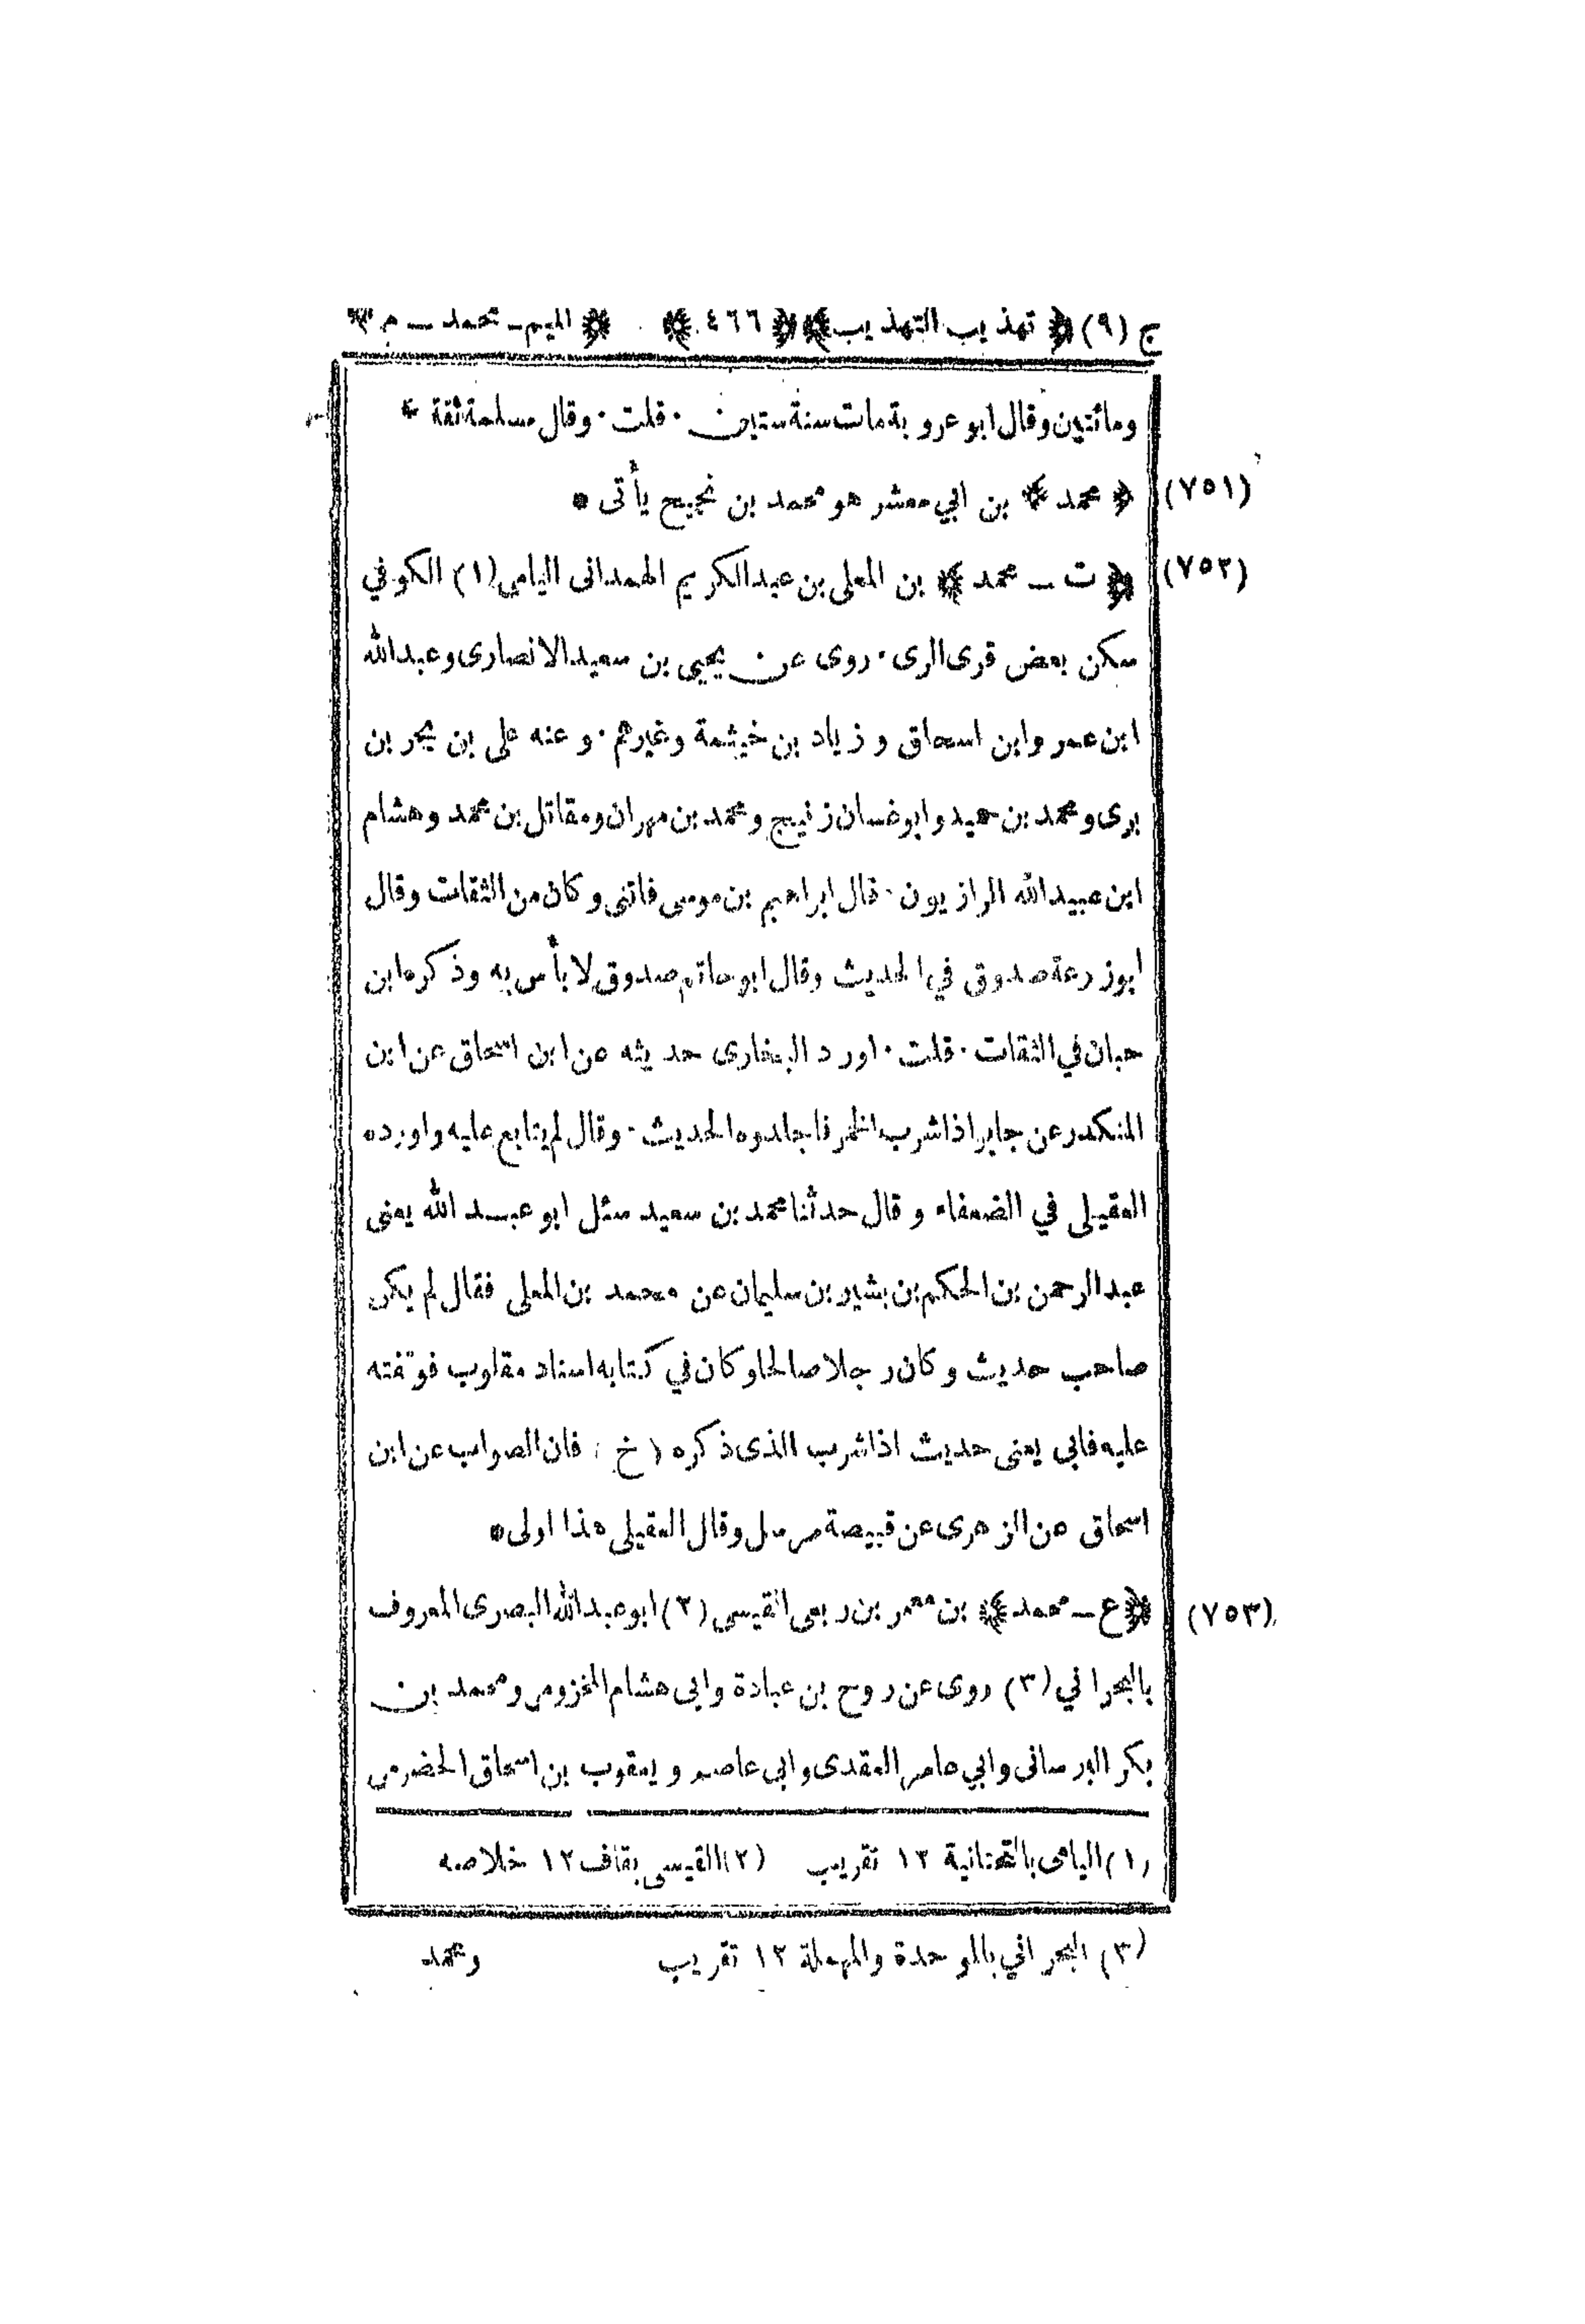 ج (٩) ﴿ تهذيب التهذيب ﴾ ﴿ ٤٦٦ ﴾ ﴿ الميم - محمد - م ﴾
ومائتين وقال ابو عروبة مات سنة ستين · قلت · وقال مسلمة ثقة *
(٧٥١) ﴿ محمد ﴾ بن ابي معشر هو محمد بن نجيح يأتى *
(٧٥٢) ﴿ ت - محمد ﴾ بن المعلى بن عبدالكريم الهمدانى اليامى (١) الكوفي
سكن بعض قرى الرى · روى عن يحيى بن سعيد الانصارى وعبدالله
ابن عمر وابن اسحاق وزياد بن خيثمة وغيرهم · وعنه على بن بحر بن
برى ومحمد بن حميد وابو غسان زنيج ومحمد بن مهران ومقاتل بن محمد وهشام
ابن عبيدالله الرازيون · قال ابراهيم بن موسى فاتنى وكان من الثقات وقال
ابو زرعة صدوق في الحديث وقال ابو حاتم صدوق لا بأس به وذكره ابن
حبان في الثقات · قلت · اورد البخارى حديثه عن ابن اسحاق عن ابن
المنكدر عن جابر اذا شرب الخمر فاجلدوه الحديث · وقال لم يتابع عليه واورده
العقيلى في الضعفاء وقال حدثنا محمد بن سعيد سئل ابو عبد الله يعنى
عبدالرحمن بن الحكم بن بشير بن سليمان عن محمد بن المعلى فقال لم يكن
صاحب حديث وكان رجلا صالحا وكان في كتابه اسناد مقلوب فوقفته
عليه فابى يعنى حديث اذا شرب الذى ذكره (خ) فان الصواب عن ابن
اسحاق عن الزهرى عن قبيصة مرسل وقال العقيلى هذا اولى *
(٧٥٣) ﴿ ع - محمد ﴾ بن معمر بن ربعى القيسى (٢) ابو عبدالله البصرى المعروف
بالبحراني (٣) روى عن روح بن عبادة وابى هشام المخزومى ومحمد بن
بكر البرسانى وابي عامر العقدى وابى عاصم ويعقوب بن اسحاق الحضرمى
(١) اليامى بالتحتانية ١٢ تقريب (٢) القيسى بقاف ١٢ خلاصه
(٣) البحراني بالموحدة والمهملة ١٢ تقريب ومحمد